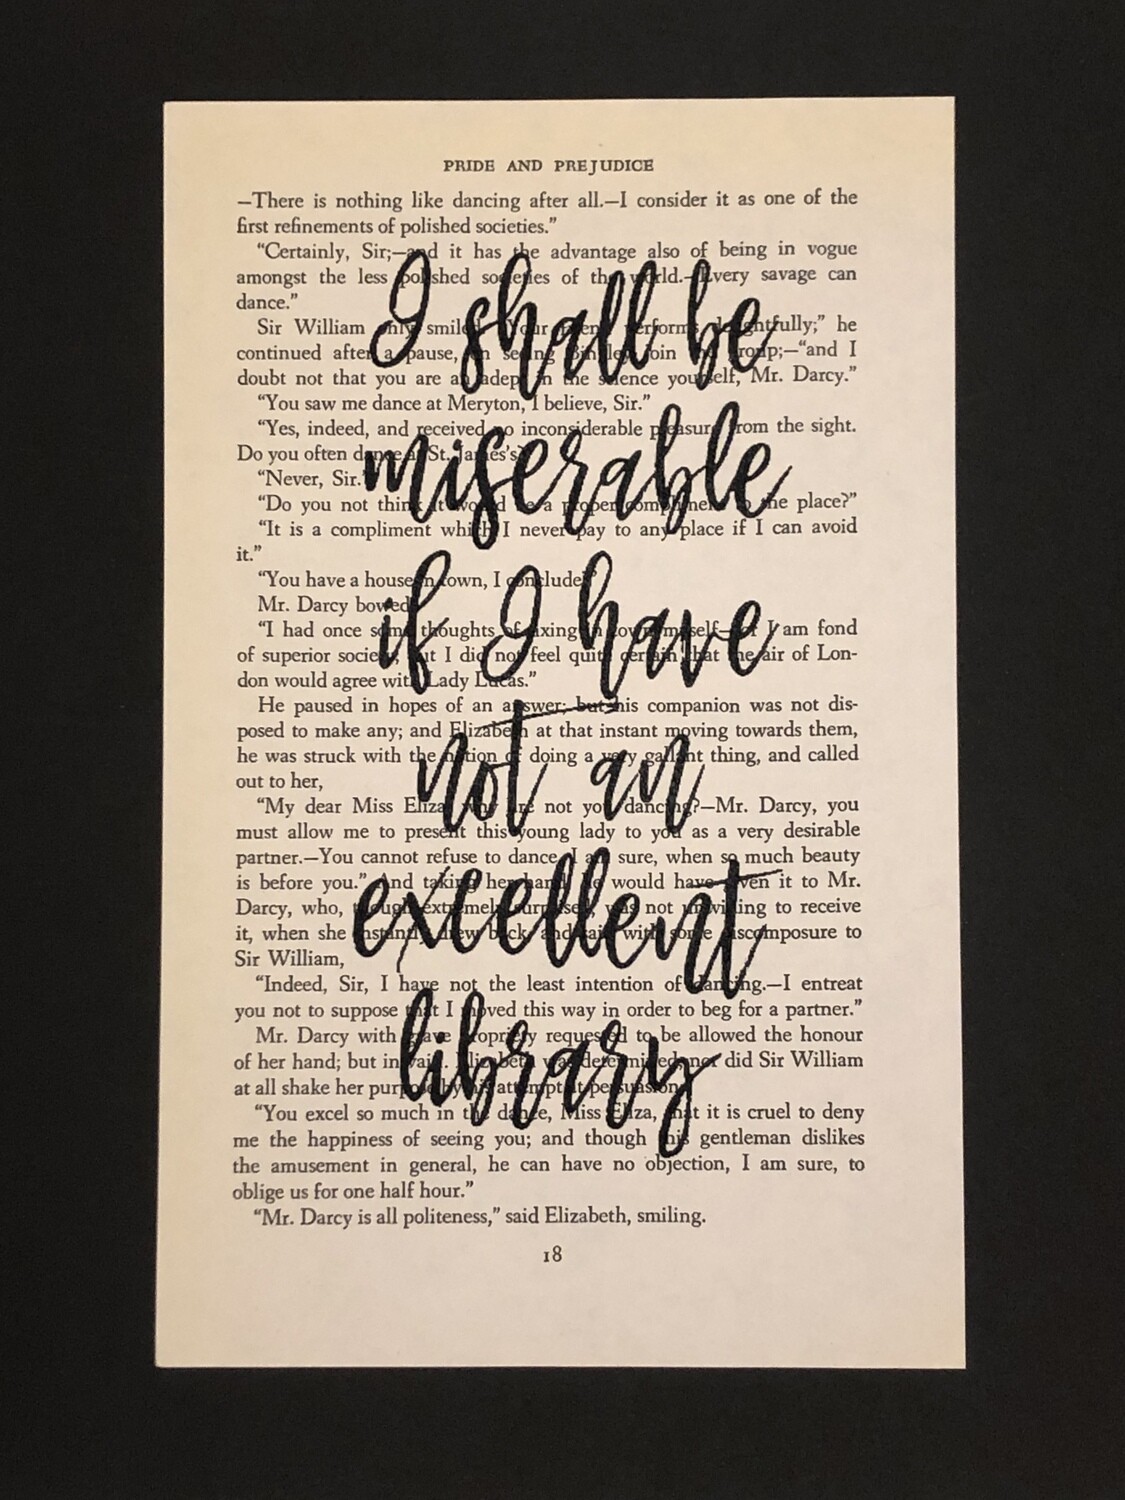 PRIDE AND PREJUDICE
—There is nothing like dancing after all.—I consider it as one of the
first refinements of polished societies.”
“Certainly, Sir;—and it has the advantage also of being in vogue
amongst the less polished societies of the world.—Every savage can
dance.”
Sir William only smiled. “Your friend performs delightfully;” he
continued after a pause, on seeing Bingley join the group;—“and I
doubt not that you are an adept in the science yourself, Mr. Darcy.”
“You saw me dance at Meryton, I believe, Sir.”
“Yes, indeed, and received no inconsiderable pleasure from the sight.
Do you often dance at St. James's?”
“Never, Sir.”
“Do you not think it would be a proper compliment to the place?”
“It is a compliment which I never pay to any place if I can avoid
it.”
“You have a house in town, I conclude?”
Mr. Darcy bowed.
“I had once some thoughts of fixing in town myself—for I am fond
of superior society; but I did not feel quite certain that the air of Lon-
don would agree with Lady Lucas.”
He paused in hopes of an answer; but his companion was not dis-
posed to make any; and Elizabeth at that instant moving towards them,
he was struck with the notion of doing a very gallant thing, and called
out to her,
“My dear Miss Eliza, why are not you dancing?—Mr. Darcy, you
must allow me to present this young lady to you as a very desirable
partner.—You cannot refuse to dance, I am sure, when so much beauty
is before you.” And taking her hand, he would have given it to Mr.
Darcy, who, though extremely surprised, was not unwilling to receive
it, when she instantly drew back, and said with some discomposure to
Sir William,
“Indeed, Sir, I have not the least intention of dancing.—I entreat
you not to suppose that I moved this way in order to beg for a partner.”
Mr. Darcy with grave propriety requested to be allowed the honour
of her hand; but in vain. Elizabeth was determined; nor did Sir William
at all shake her purpose by his attempt at persuasion.
“You excel so much in the dance, Miss Eliza, that it is cruel to deny
me the happiness of seeing you; and though this gentleman dislikes
the amusement in general, he can have no objection, I am sure, to
oblige us for one half hour.”
“Mr. Darcy is all politeness,” said Elizabeth, smiling.
18
I shall be
miserable
if I have
not an
excellent
library